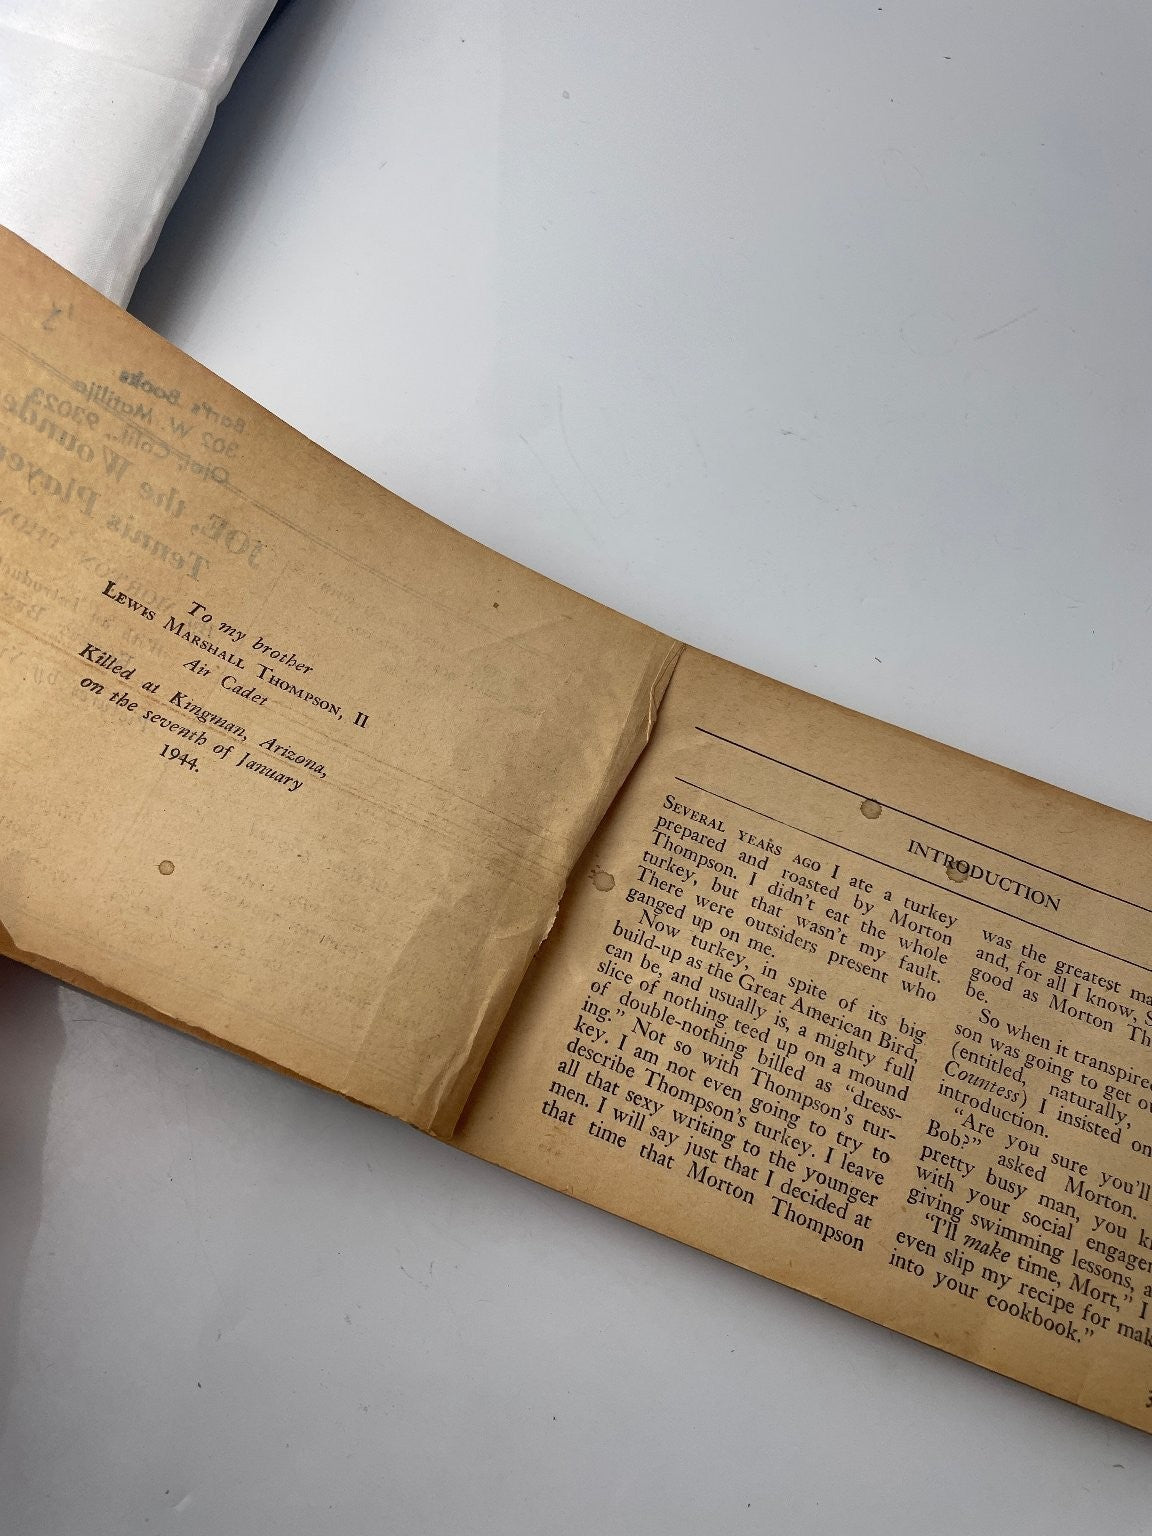 Bart's Books
302 W. Matilija
Ojai, Calif. 93023
JOE, the Wounded
Tennis Player
To my brother
LEWIS MARSHALL THOMPSON, II
Air Cadet
Killed at Kingman, Arizona,
on the seventh of January
1944.
INTRODUCTION
SEVERAL YEARS AGO I ate a turkey
prepared and roasted by Morton
Thompson. I didn't eat the whole
turkey, but that wasn't my fault.
There were outsiders present who
ganged up on me.
Now turkey, in spite of its big
build-up as the Great American Bird,
can be, and usually is, a mighty full
slice of nothing teed up on a mound
of double-nothing billed as "dress-
ing." Not so with Thompson's tur-
key. I am not even going to try to
describe Thompson's turkey. I leave
all that sexy writing to the younger
men. I will say just that I decided at
that time that Morton Thompson
was the greatest
and, for all I know,
good as Morton
be.
So when it transpired
son was going to get
(entitled, naturally,
Countess) I insisted on
introduction.
"Are you sure you'll
Bob?" asked Morton.
pretty busy man, you
with your social
giving swimming lessons,
"I'll make time, Mort," I
even slip my recipe for
into your cookbook."